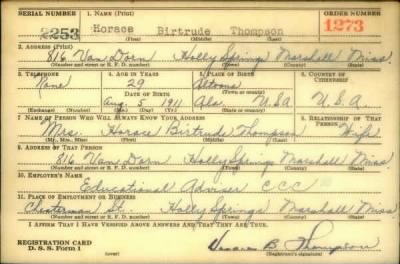 SERIAL NUMBER 1. NAME (Print) ORDER NUMBER
2253 Horace Birtrude Thompson 1273
(First) (Middle) (Last)
2. ADDRESS (Print)
816 Van Dorn Holly Springs Marshall Miss.
(Number and street or R. F. D. number) (Town) (County) (State)
3. TELEPHONE 4. AGE IN YEARS 5. PLACE OF BIRTH 6. COUNTRY OF CITIZENSHIP
None 29 Altoona
DATE OF BIRTH (Town or county)
Aug. 5 1911 Ala. USA U.S.A.
(Exchange) (Number) (Mo.) (Day) (Yr.) (State or country)
7. NAME OF PERSON WHO WILL ALWAYS KNOW YOUR ADDRESS 8. RELATIONSHIP OF THAT PERSON
Mrs. Horace Birtrude Thompson Wife
(Mr., Mrs., Miss) (First) (Middle) (Last)
9. ADDRESS OF THAT PERSON
816 Van Dorn Holly Springs Marshall Miss
(Number and street or R. F. D. number) (Town) (County) (State)
10. EMPLOYER'S NAME
Educational Adviser CCC
11. PLACE OF EMPLOYMENT OR BUSINESS
St. Holly Springs Marshall Miss.
(Number and street or R. F. D. number) (Town) (County) (State)
I AFFIRM THAT I HAVE VERIFIED ABOVE ANSWERS AND THAT THEY ARE TRUE.
REGISTRATION CARD
D. S. S. Form 1 Horace B. Thompson
(Registrant's signature)